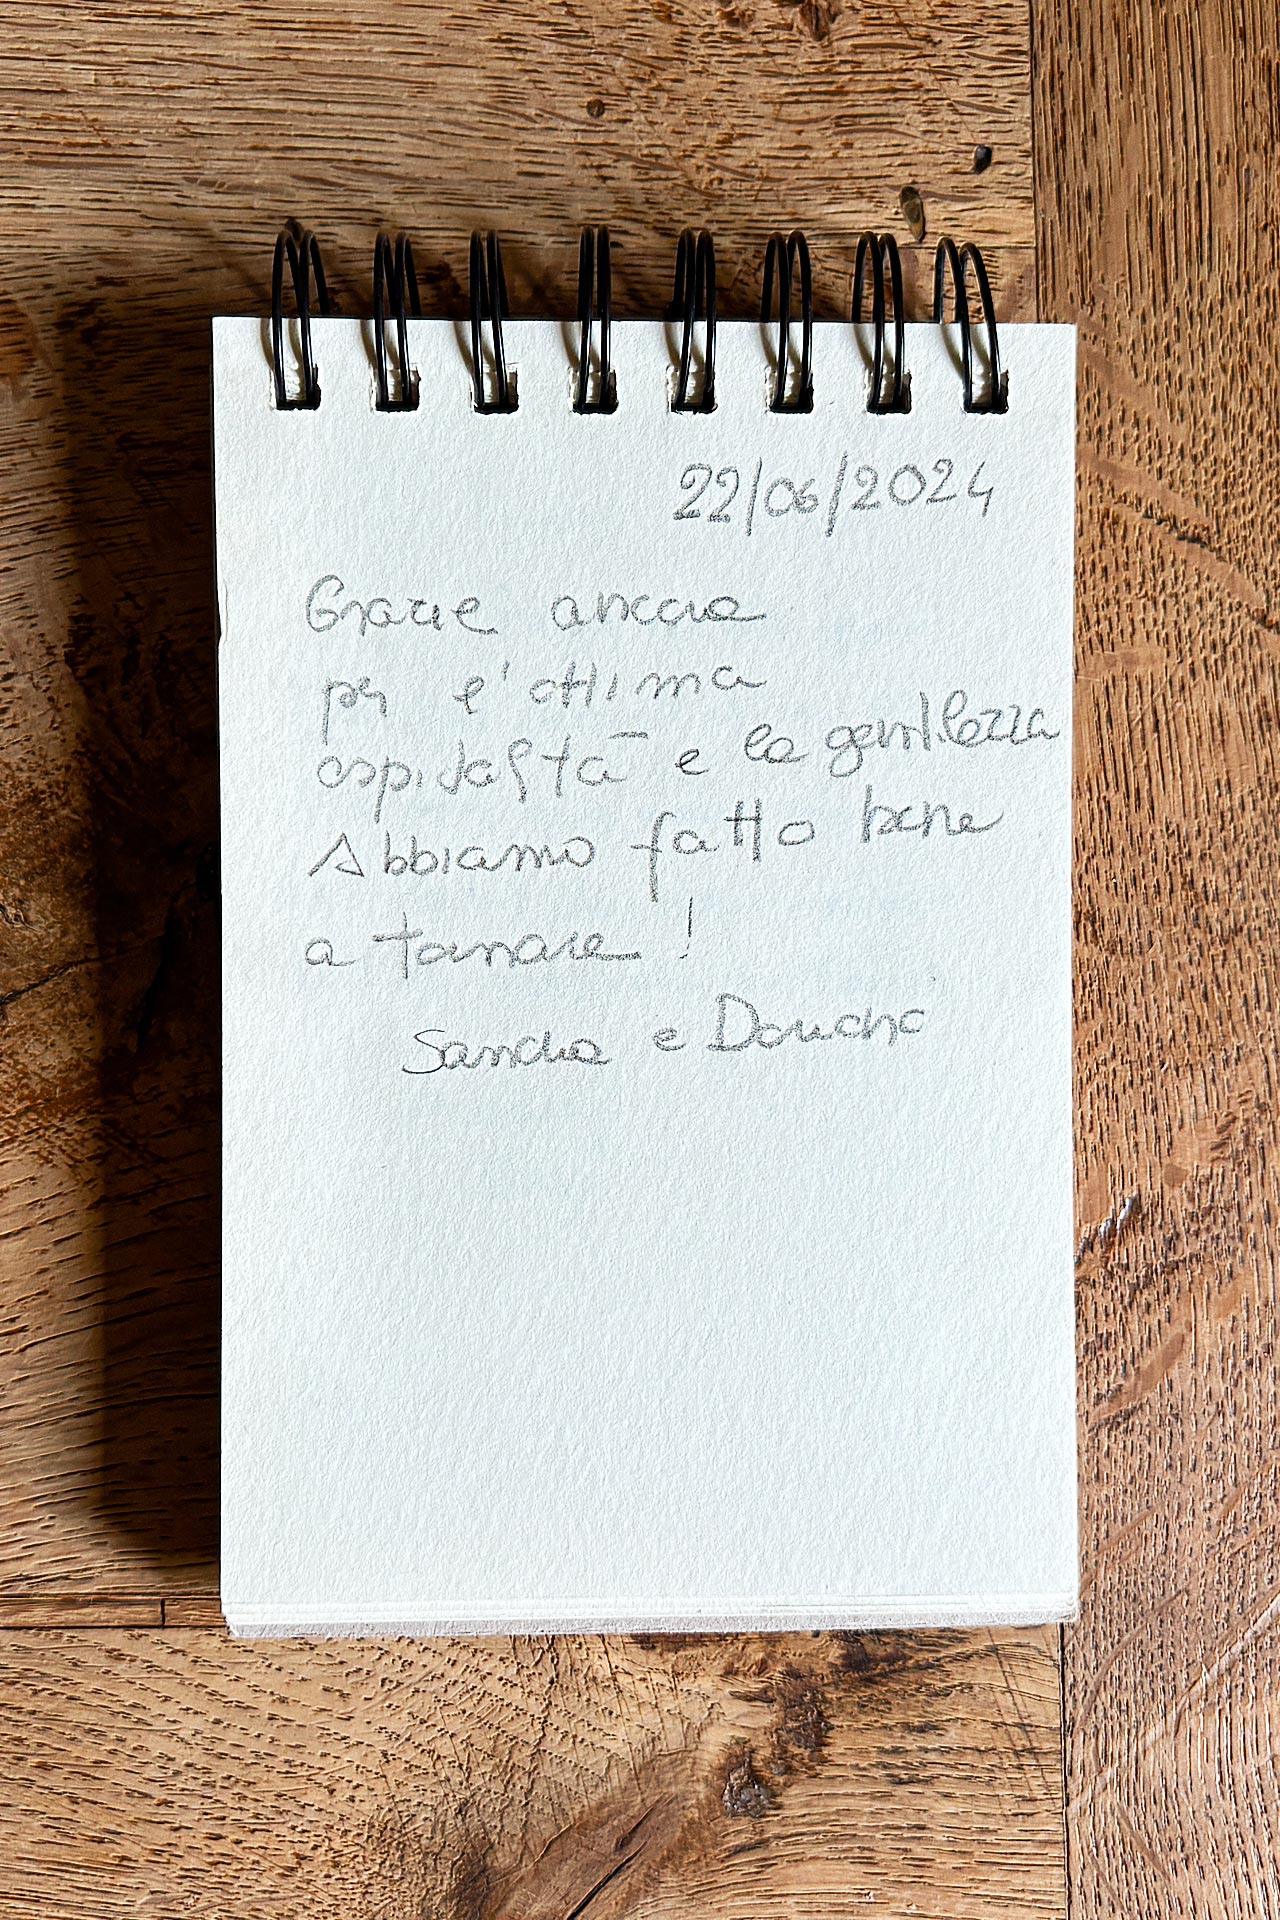 22/06/2024
Grazie ancora
per l'ottima
ospitalità e la gentilezza
Abbiamo fatto bene
a tornare!
Sandra e